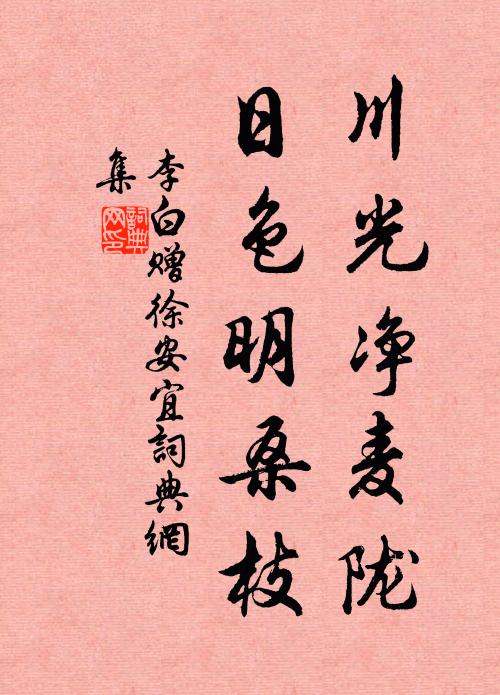 川光净麦陇
日色明桑枝
李白赠徐安宜詞典網
集
詞典
网印